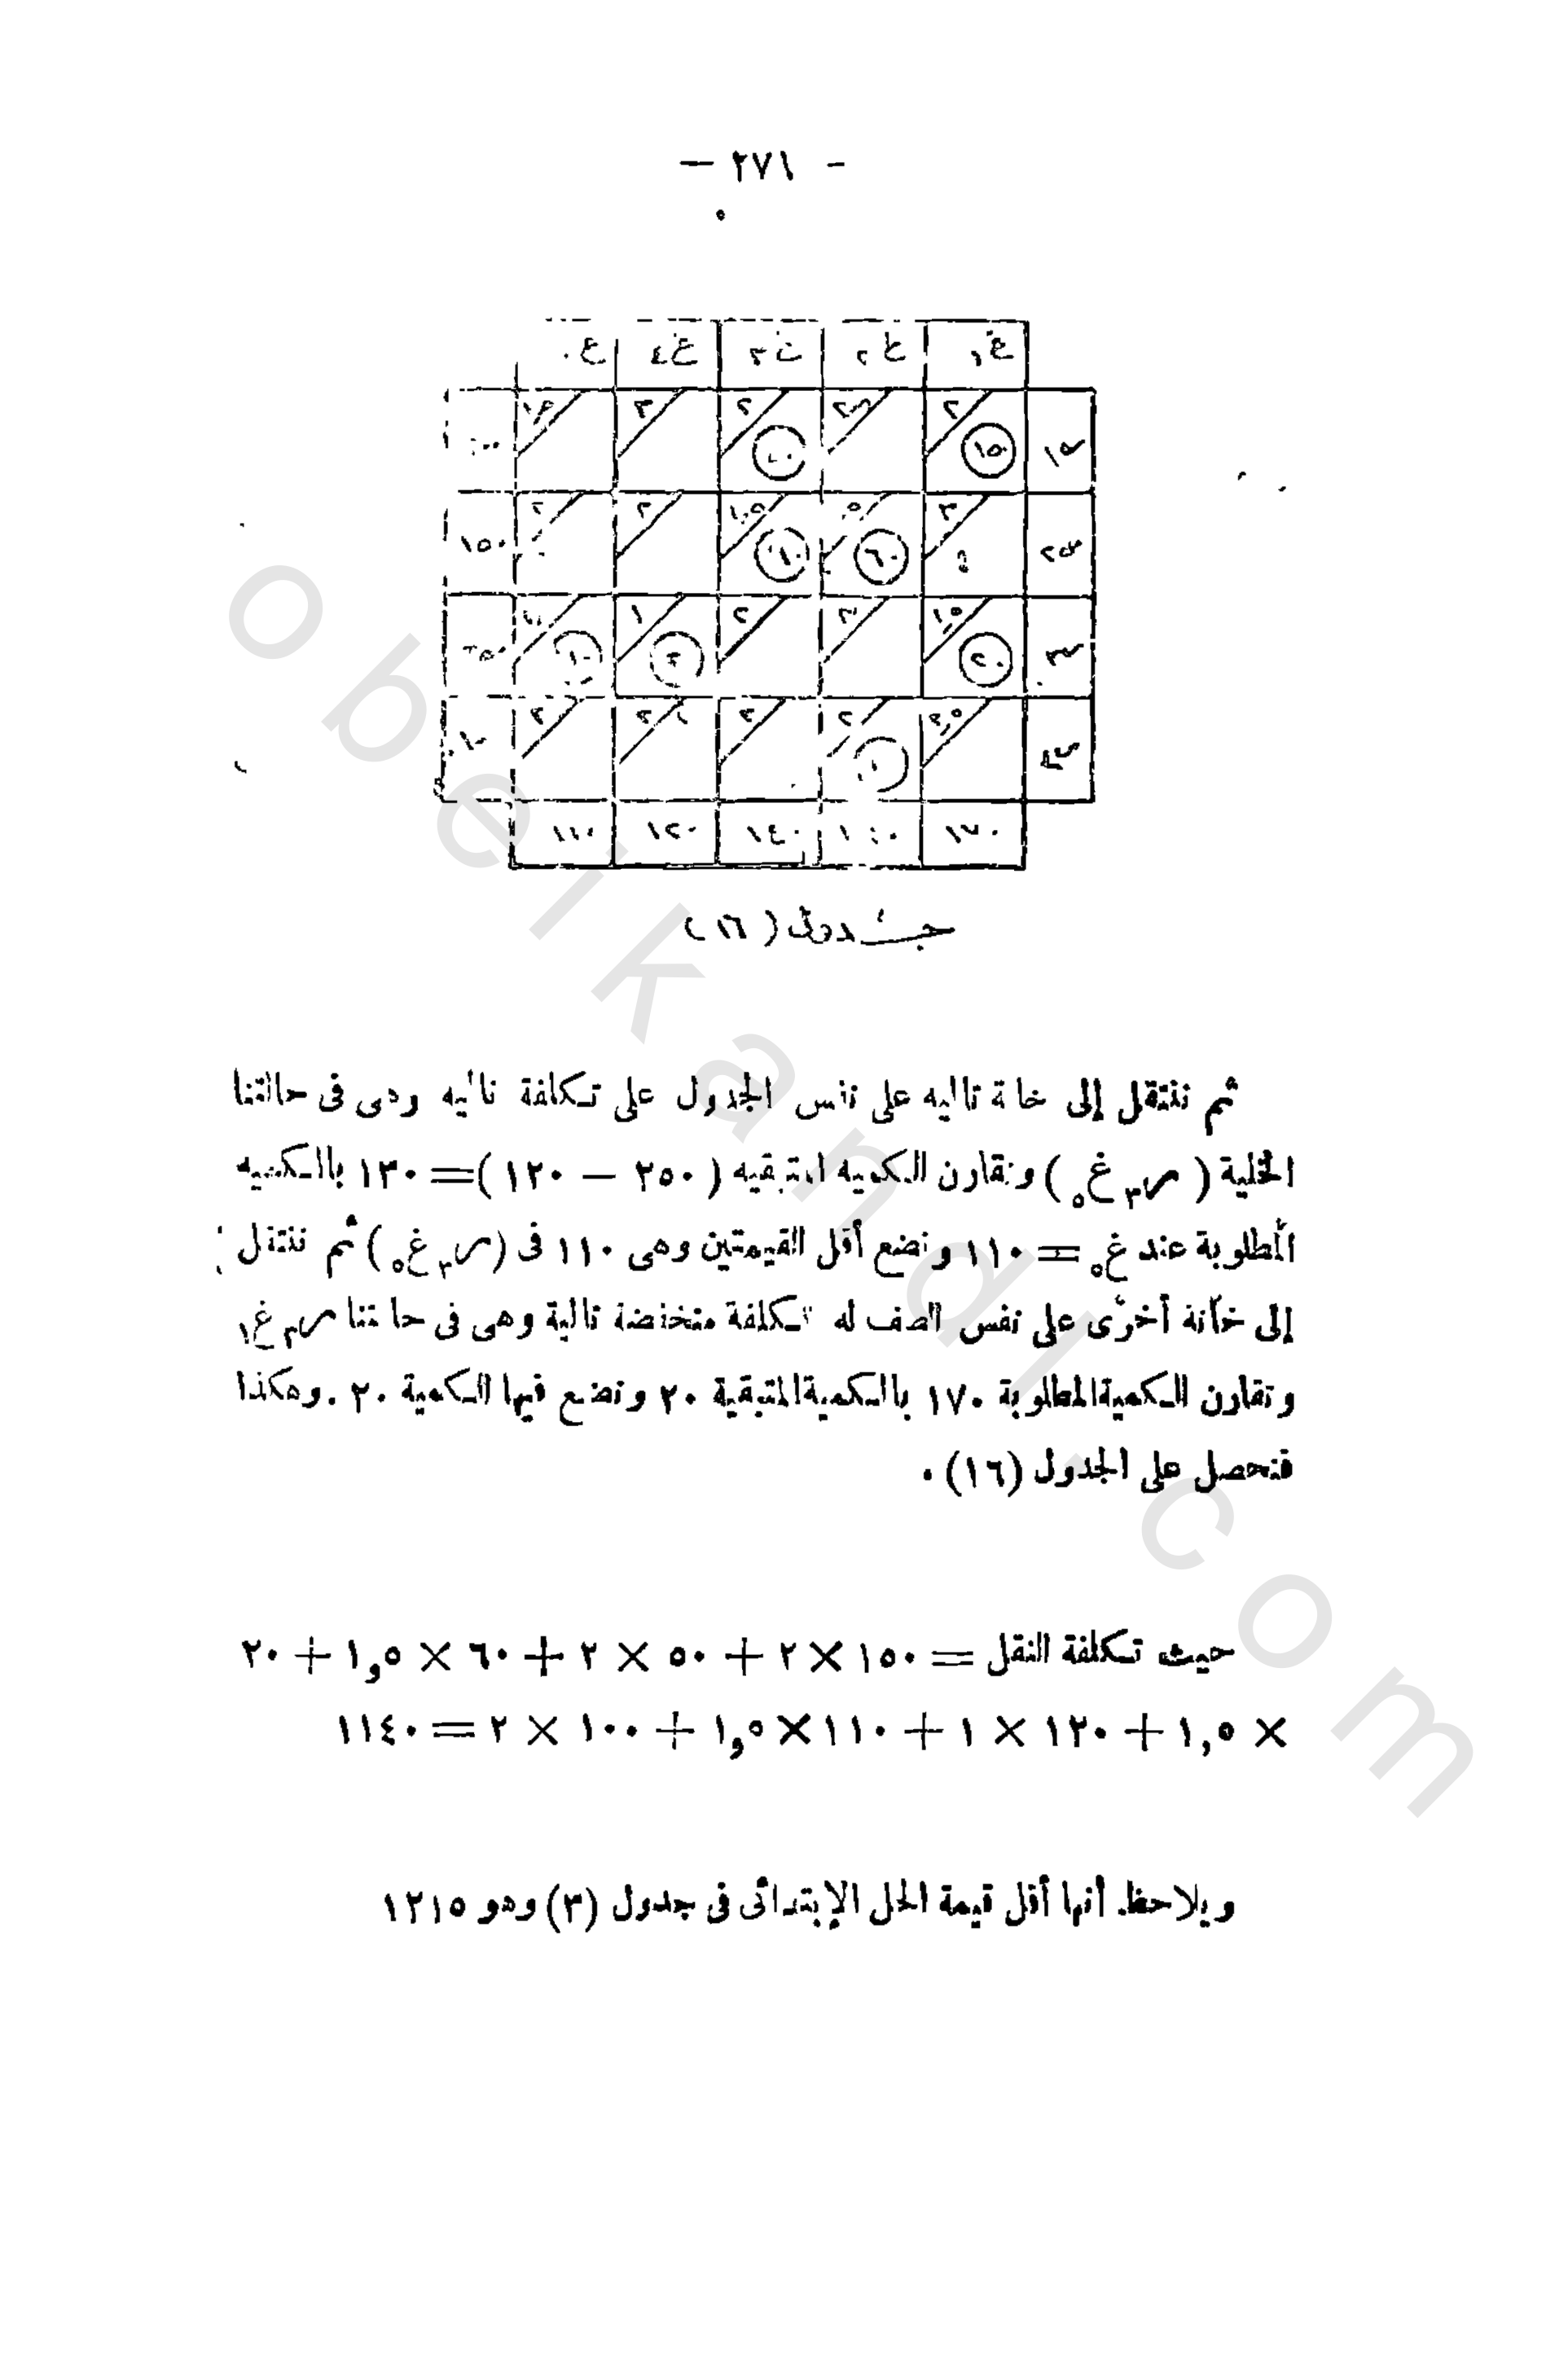 — ٢٧١ -
غ١ غ٢ غ٣ غ٤
٢ ٢ ٣
١٥٠
٣ ١,٥ ٢ ٢ ١٥٠
٦٠
١,٥ ٢ ١
٢,٥ ٢ ٣ ٣
١٧٠ ١٤٠ ١٢٠ ١١٠
جدول (١٦)
ثم ننتقل إلى خانة تاليه على نفس الجدول على تكلفة تاليه وهى فى حالتنا
الخلية ( م٣ غ٥ ) ونقارن الكميه المتبقيه ( ٢٥٠ — ١٢٠ ) = ١٣٠ بالكميه
المطلوبة عند غ٥ = ١١٠ ونضع أقل القيمتين وهى ١١٠ فى (م٣ غ٥) ثم ننتقل
إلى خانة أخرى على نفس الصف له تكلفة منخفضة تالية وهى فى حالتنا م٣ غ١
ونقارن الكمية المطلوبة ١٧٠ بالكمية المتبقية ٢٠ ونضع فيها الكمية ٢٠ . وهكذا
فنحصل على الجدول (١٦) .
حيث تكلفة النقل = ١٥٠ × ٢ + ٥٠ × ٢ + ٦٠ × ١,٥ + ٢٠
× ١,٥ + ١٢٠ × ١ + ١١٠ × ١,٥ + ١٠٠ × ٢ = ١١٤٠
ويلاحظ أنها أقل قيمة الحل الإبتدائى فى جدول (٣) وهو ١٢١٥
obeikandl.com